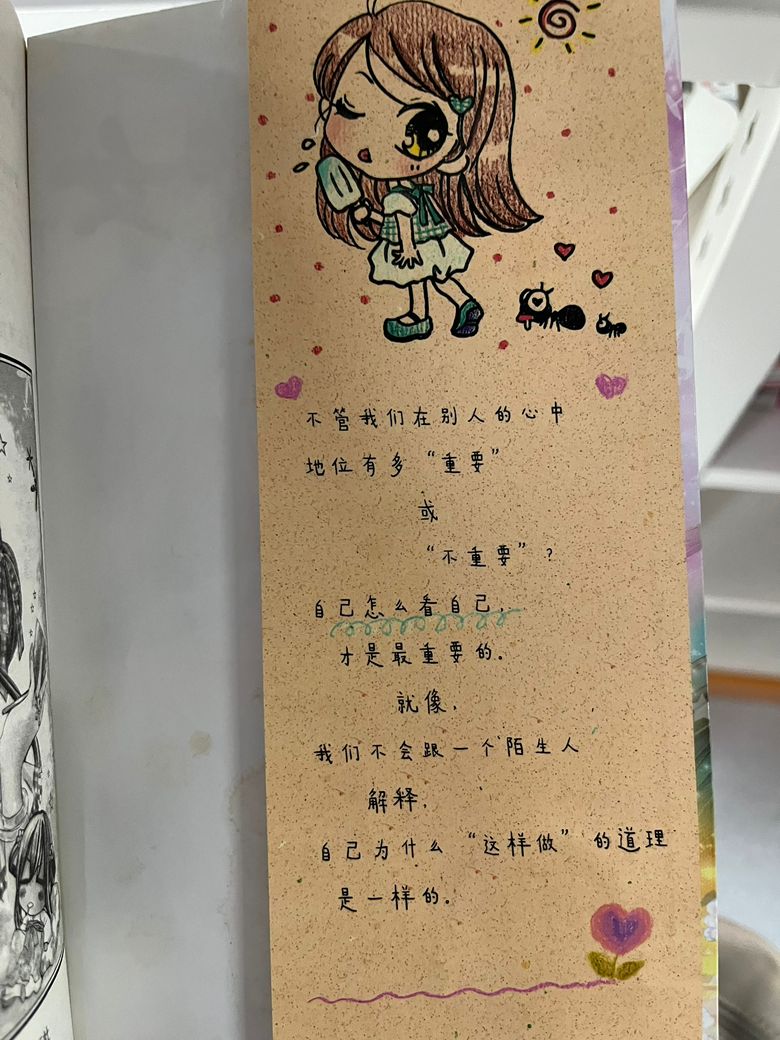 不管我们在别人的心中
地位有多“重要”
或
“不重要”？
自己怎么看自己，
才是最重要的。
就像，
我们不会跟一个陌生人
解释，
自己为什么“这样做”的道理
是一样的。